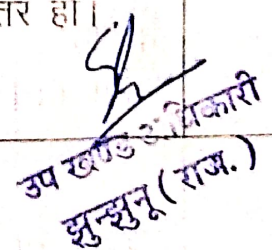 तर हो।
उप खण्ड अधिकारी
झुन्झुनू (राज.)